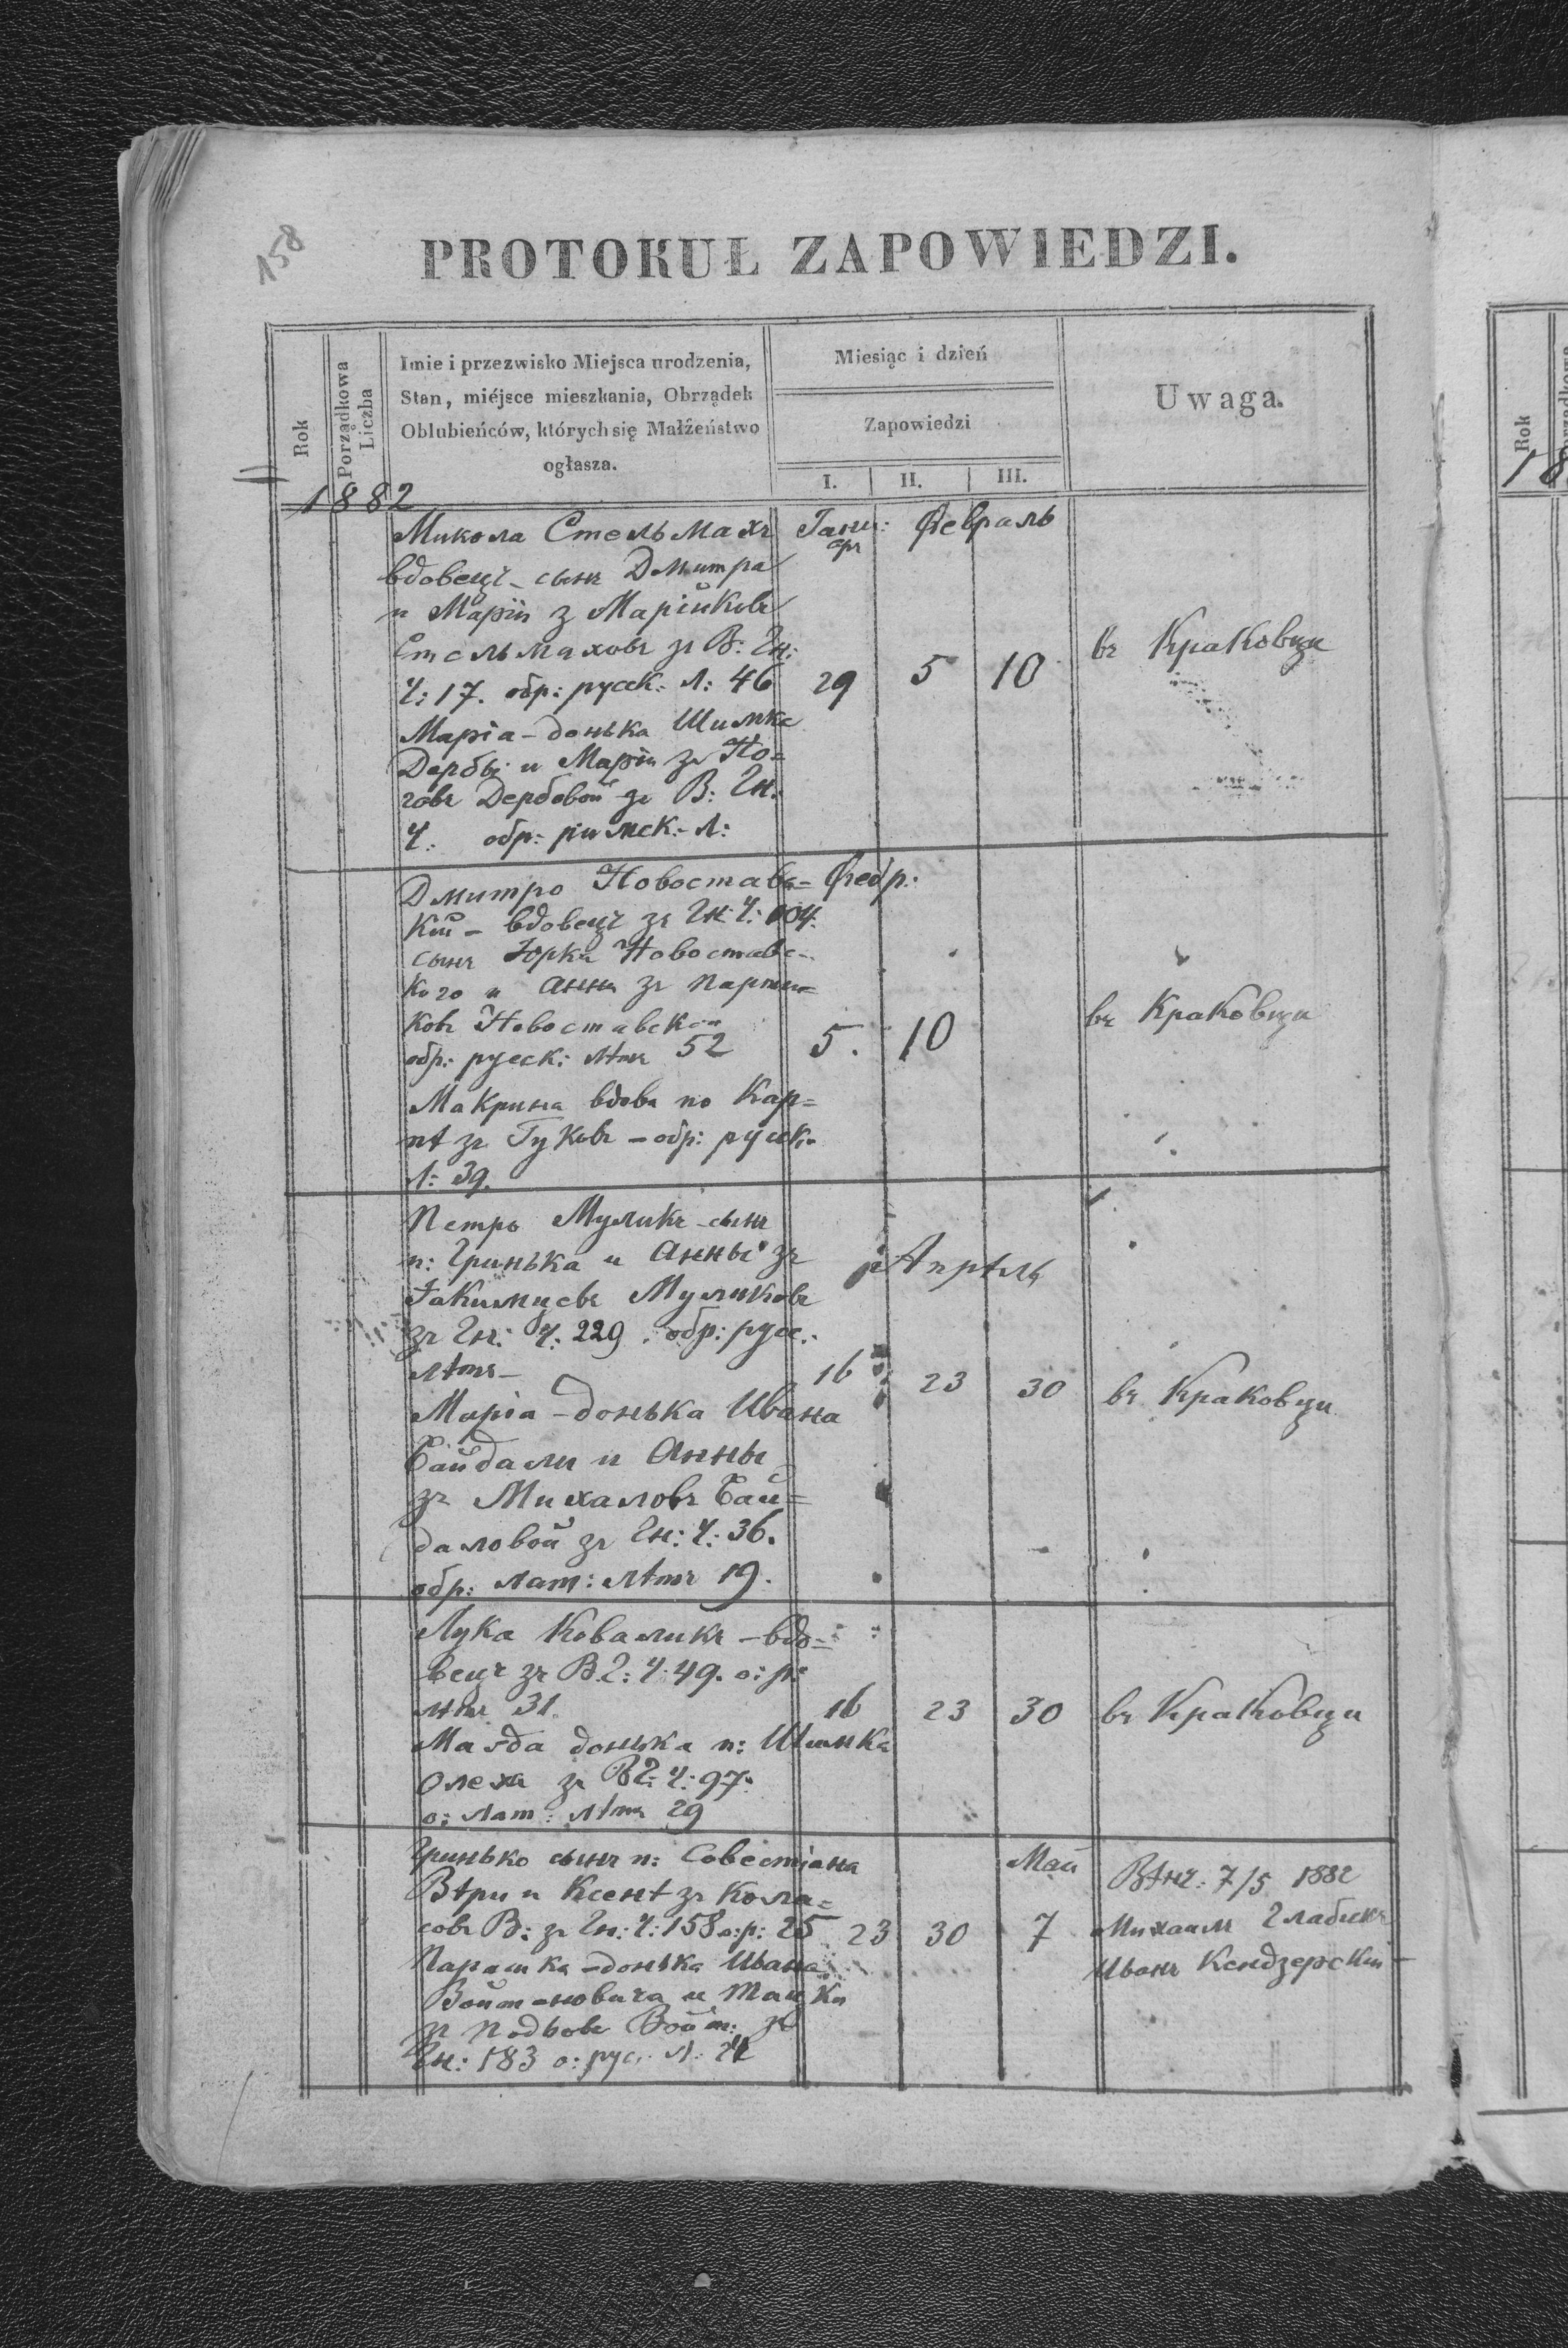 158
PROTOKUŁ ZAPOWIEDZI.
Rok
Porządkowa Liczba
Imie i przezwisko Miejsca urodzenia,
Stan, miéjsce mieszkania, Obrządek
Oblubieńców, których się Małżeństwo
ogłasza.
Miesiąc i dzień
Zapowiedzi
I. II. III.
Uwaga.
1882
Микола Стельмахъ
вдовецъ - сынъ Дмитра
и Маріи з Марійковъ
Стельмаховъ зъ В: Гн:
Ч: 17. обр: руск: Л: 46
Марія - донька Шимка
Дербы и Маріи зъ Но=
говъ Дербовой зъ В: Гн:
Ч: обр: римск: Л:
Іану: аръ Февраль
29 5 10
въ Краковци
Дмитро Новоставс=
кій - вдовецъ зъ Гн: Ч: 104.
сынъ Юрка Новоставс-
кого и Анны зъ Парти=
ковъ Новоставской
обр: руск: лѣтъ 52
Макрина вдова по Кар=
пѣ зъ Гуковъ - обр: руск:
Л: 39.
Февр:
5. 10
въ Краковци
Петро Муликъ - сынъ
п: Гринька и Анны зъ
Іакимцевъ Муликовъ
зъ Гн: Ч: 229. обр: рус:
лѣтъ -
Марія - донька Ивана
Байдалы и Анны
зъ Михаловъ Бай=
даловой зъ Гн: Ч: 36.
обр: лат: лѣтъ 19.
Апрѣль
16 23 30
въ Краковци
Лука Коваликъ - вдо=
вецъ зъ В.Г: Ч: 49. о: р:
лѣтъ 31.
Магда донька п: Шимка
Олеха зъ ВГ: Ч: 97.
о: лат: лѣтъ 29
16 23 30
въ Краковци
Гринько сынъ п: Совестіана
Вѣри и Ксенѣ зъ Кола=
совъ В: зъ Гн: Ч: 158 о: р: 25
Парашка - донька Ивана
Войт-новича и
зъ Войт: зъ
Гн: 183 о: рус: Л:
Май
23 30 7
Вѣнч: 7/5 1882
Михаилъ Глабикъ
Иванъ Кендзерскій
Rok
18